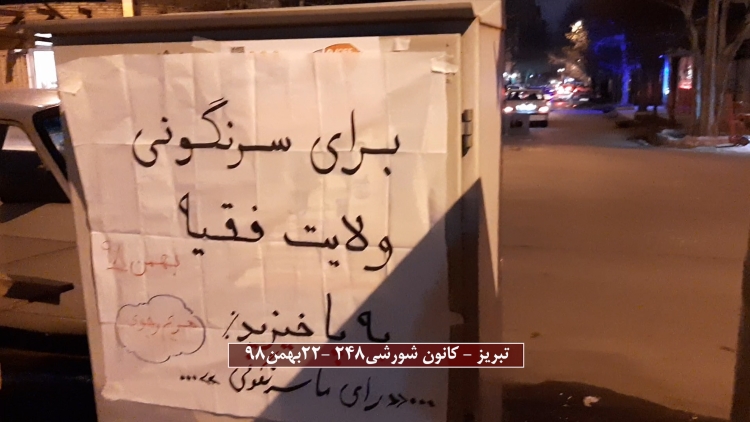 برای سرنگونی
ولایت فقیه
بهمن ۹۸
به پا خیزید
مریم رجوی
تبریز - کانون شورشی۲۴۸ -۲۲بهمن۹۸
...«رای ما سرنگونی»...